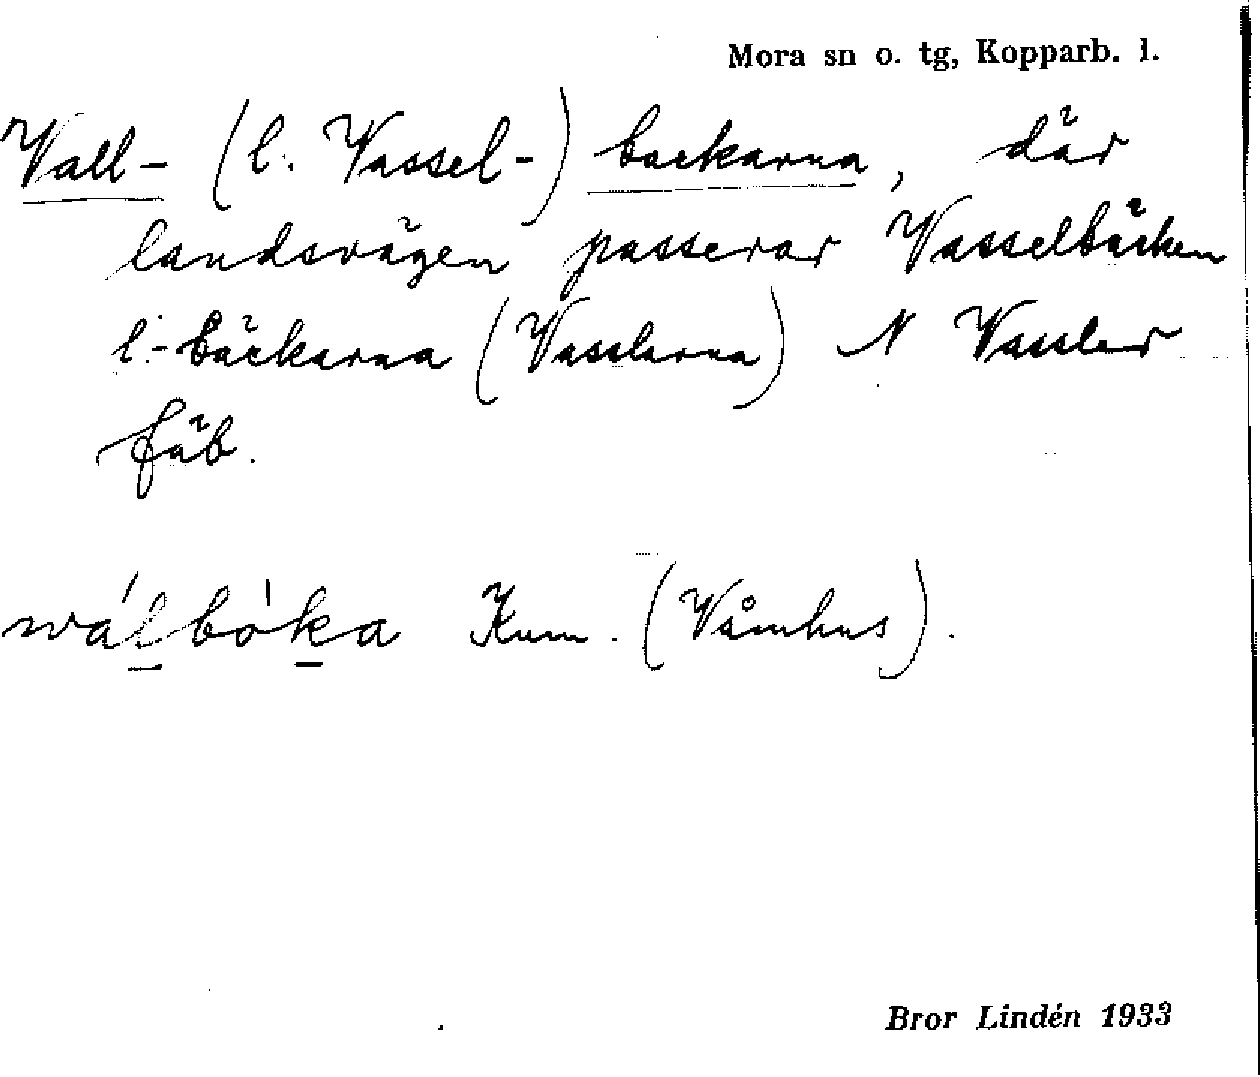 Mora sn o. tg, Kopparb. l.
Vall- (l. Vassel-) backarna, där
landsvägen passerar Vasselbäcken
l. -bäckarna (Vasslarna) N Vassler
fäb.
wálbòka Kum. (Våmhus).
Bror Lindén 1933